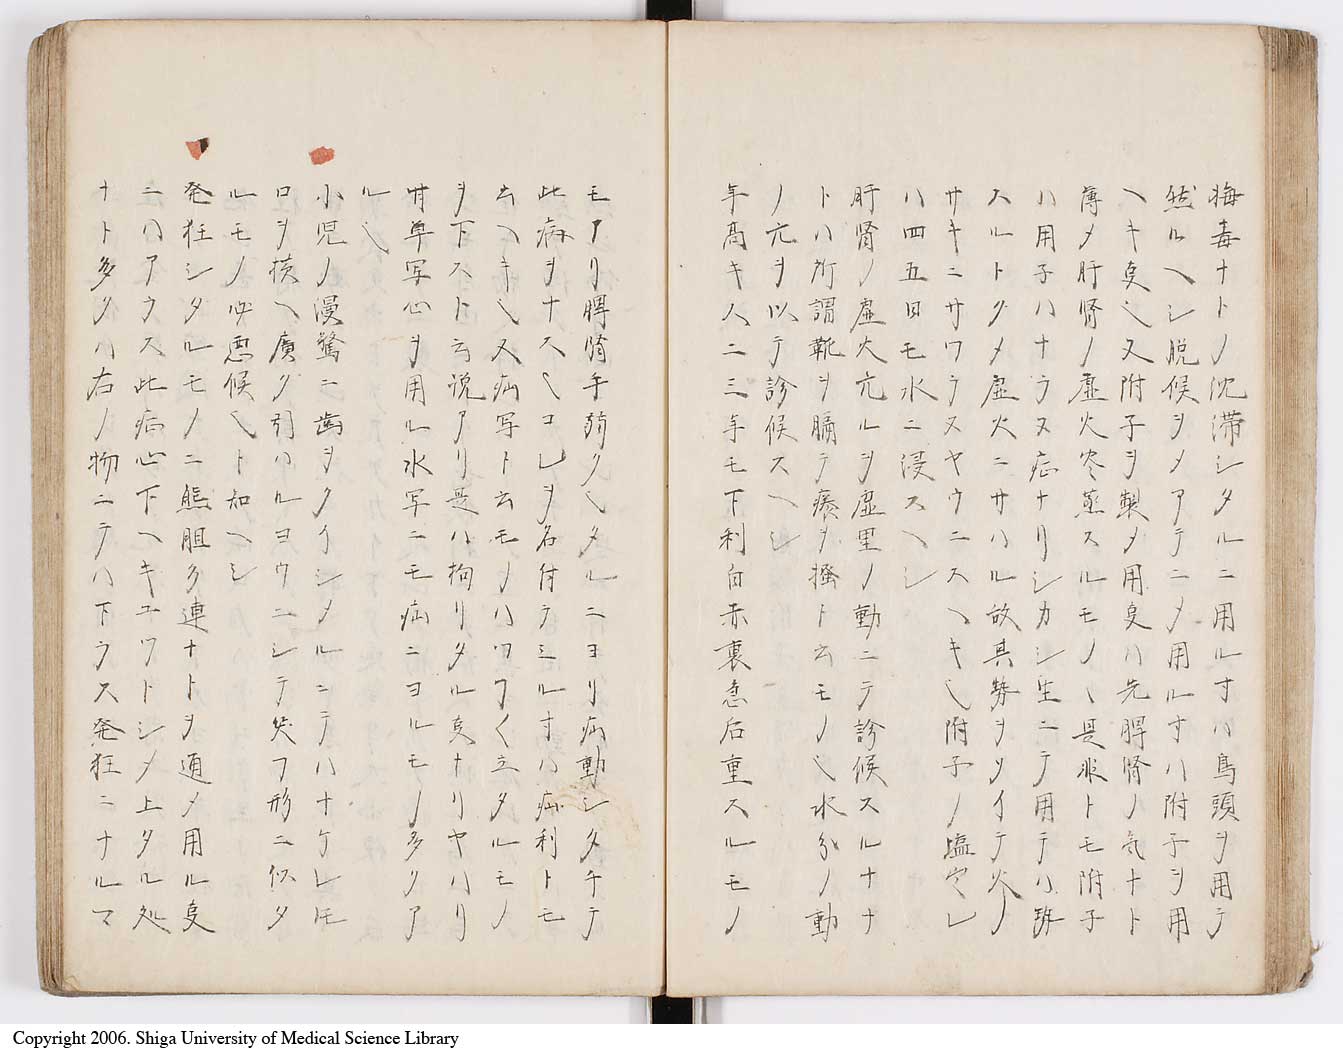 梅毒ナトノ沈滞シタルニ用ルヿハ烏頭ヲ用テ
然ルヘシ脱候ヲメアテニメ用ルヿハ附子ヲ用
ヘキ㕝也又附子ヲ製メ用㕝ハ先脾腎ノ気ナト
薄メ肝腎ノ虚火蒸スルモノハ是非トモ附子
ハ用子ハナラヌ症ナリシカシ生ニテ用テハ
スルトクメ虚火ニサハル故其勢ヲソイテ火ノ
サキニサワラヌヤウニスヘキ也附子ノ塩
ハ四五日モ水ニ浸スヘシ
肝腎ノ虚火亢ルヲ虚里ノ動ニテ診候スルナナ
トハ所謂靴ヲ隔テ癢ヲ搔ト云モノ也水分ノ動
ノ亢ヲ以テ診候スヘシ
年高キ人二三年モ下利白赤裏急后重スルモノ
モアリ脾腎手弱クヘタルニヨリ疝動シタチテ
此病ヲナス也コレヲ名付テミルヿハ疝利トモ
云ヘキ也又疝写トモノハワク立タルモノ
ヲ下スト云説アリ是ハ拘リタル㕝ナリヤハリ
甘草写心ヲ用ル水写ニモ疝ニヨルモノ多クア
ル也
小児ノ漫驚ニ歯ヲクイシメルニテハナケレ𪜈
口ヲ横ヘ廣ク引ハルヨウニシテ笑フ形ニ似タ
ルモノ必悪候也ト知ヘシ
発狂シタルモノニ熊胆多連ナトヲ通メ用ル㕝
ニハアラス此病心下ヘキユワトシメ上タル処
ナト多クハ右ノ物ニテハ下ラス発狂ニナルマ
Copyright 2006. Shiga University of Medical Science Library